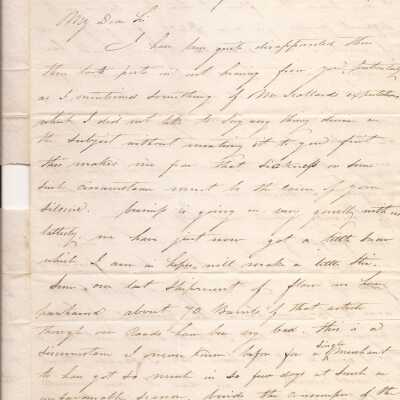 My Dear Sir
I have been quite disappointed these
three last posts in not hearing from you, particularly
as I mentioned something of Mr Scollands expectations
which I did not like to say any thing down on
the subject without making it to you first
this makes me fear that sickness or some
such circumstance must be the cause of your
silence. business is going on very poorly with us
latterly, we have just now got a little snow
which I am in hopes will make a little stir.
Since our last shipment of flour we have
purchased about 70 Barrels of that article
though our Roads have been very bad. this is a
circumstance I never knew before for a single merchant
to have got so much in so few days at such an
unfavourable season. beside the consumption of the